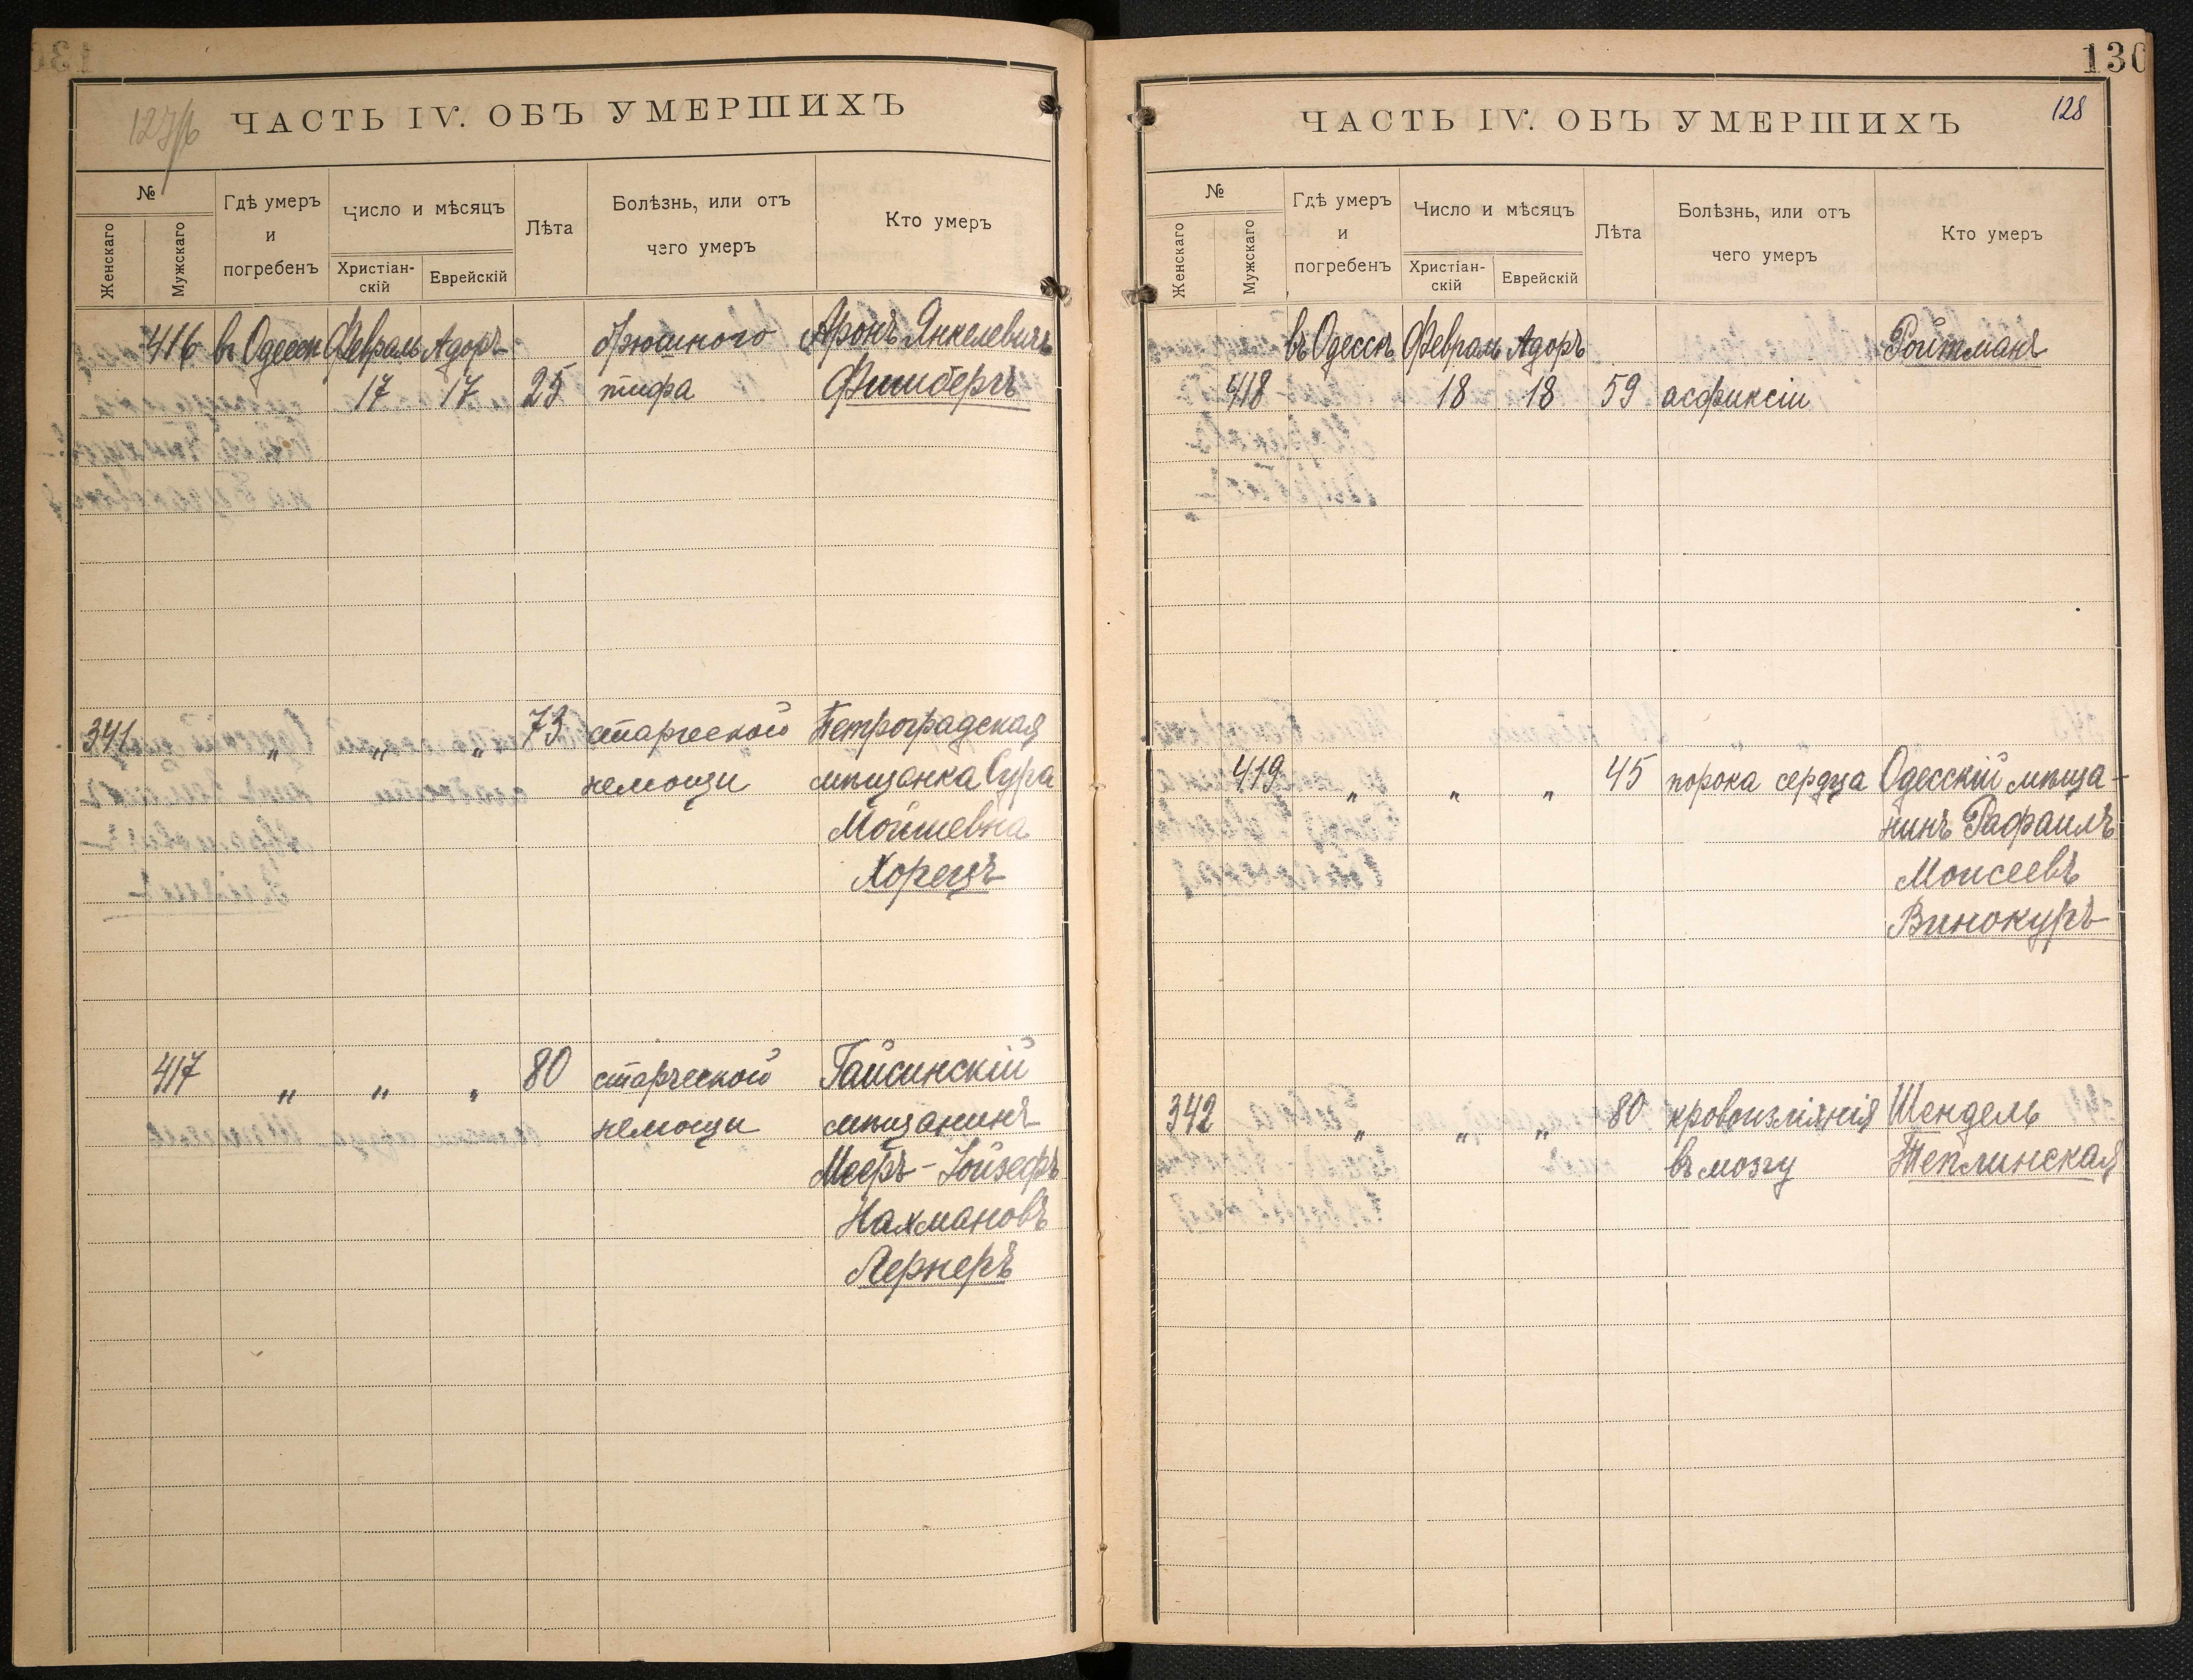 ЧАСТЬ IV. ОБЪ УМЕРШИХЪ
№
Женскаго
Мужскаго
Гдѣ умеръ
и
погребенъ
Число и мѣсяцъ
Христіан-
скій
Еврейскій
Лѣта
Болѣзнь, или отъ
чего умеръ
Кто умеръ
416 въ Одессѣ Февраль Адоръ брюшного Аронъ Янкелевичъ
17 17 25 тифа Фишберъ
341 „ „ „ 73 старческой Петроградская
немощи мѣщанка Сура
Мойшевна
Хорецъ
417 „ „ „ 80 старческой Гайсинскій
немощи мѣщанинъ
Мееръ-Іойзефъ
Нахмановъ
Лернеръ
130
128
ЧАСТЬ IV. ОБЪ УМЕРШИХЪ
№
Женскаго
Мужскаго
Гдѣ умеръ
и
погребенъ
Число и мѣсяцъ
Христіан-
скій
Еврейскій
Лѣта
Болѣзнь, или отъ
чего умеръ
Кто умеръ
въ Одессѣ Февраль Адоръ Ройтманъ
418 18 18 59 асфиксіи
419 „ „ „ 45 порока сердца Одесскій мѣща-
нинъ Рафаилъ
Моисеевъ
Винокуръ
342 „ „ „ 80 кровоизліянія Шендель
въ мозгу Теплинская